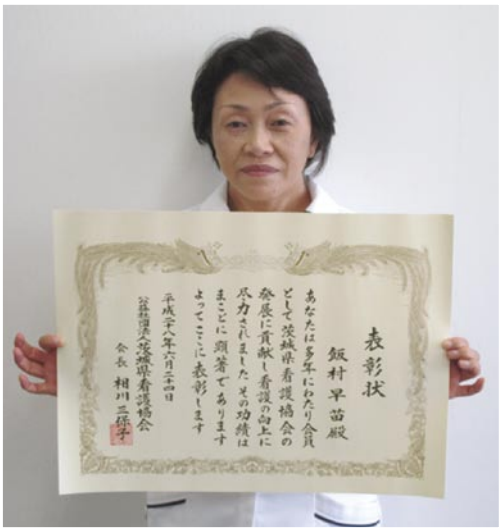 表彰状
飯村早苗殿
あなたは多年にわたり会員
として茨城県看護協会の
発展に貢献し看護の向上に
尽力されましたその功績は
まことに顕著であります
よってここに表彰します
平成二十八年六月二十四日
公益社団法人茨城県看護協会
会長 相川三保子